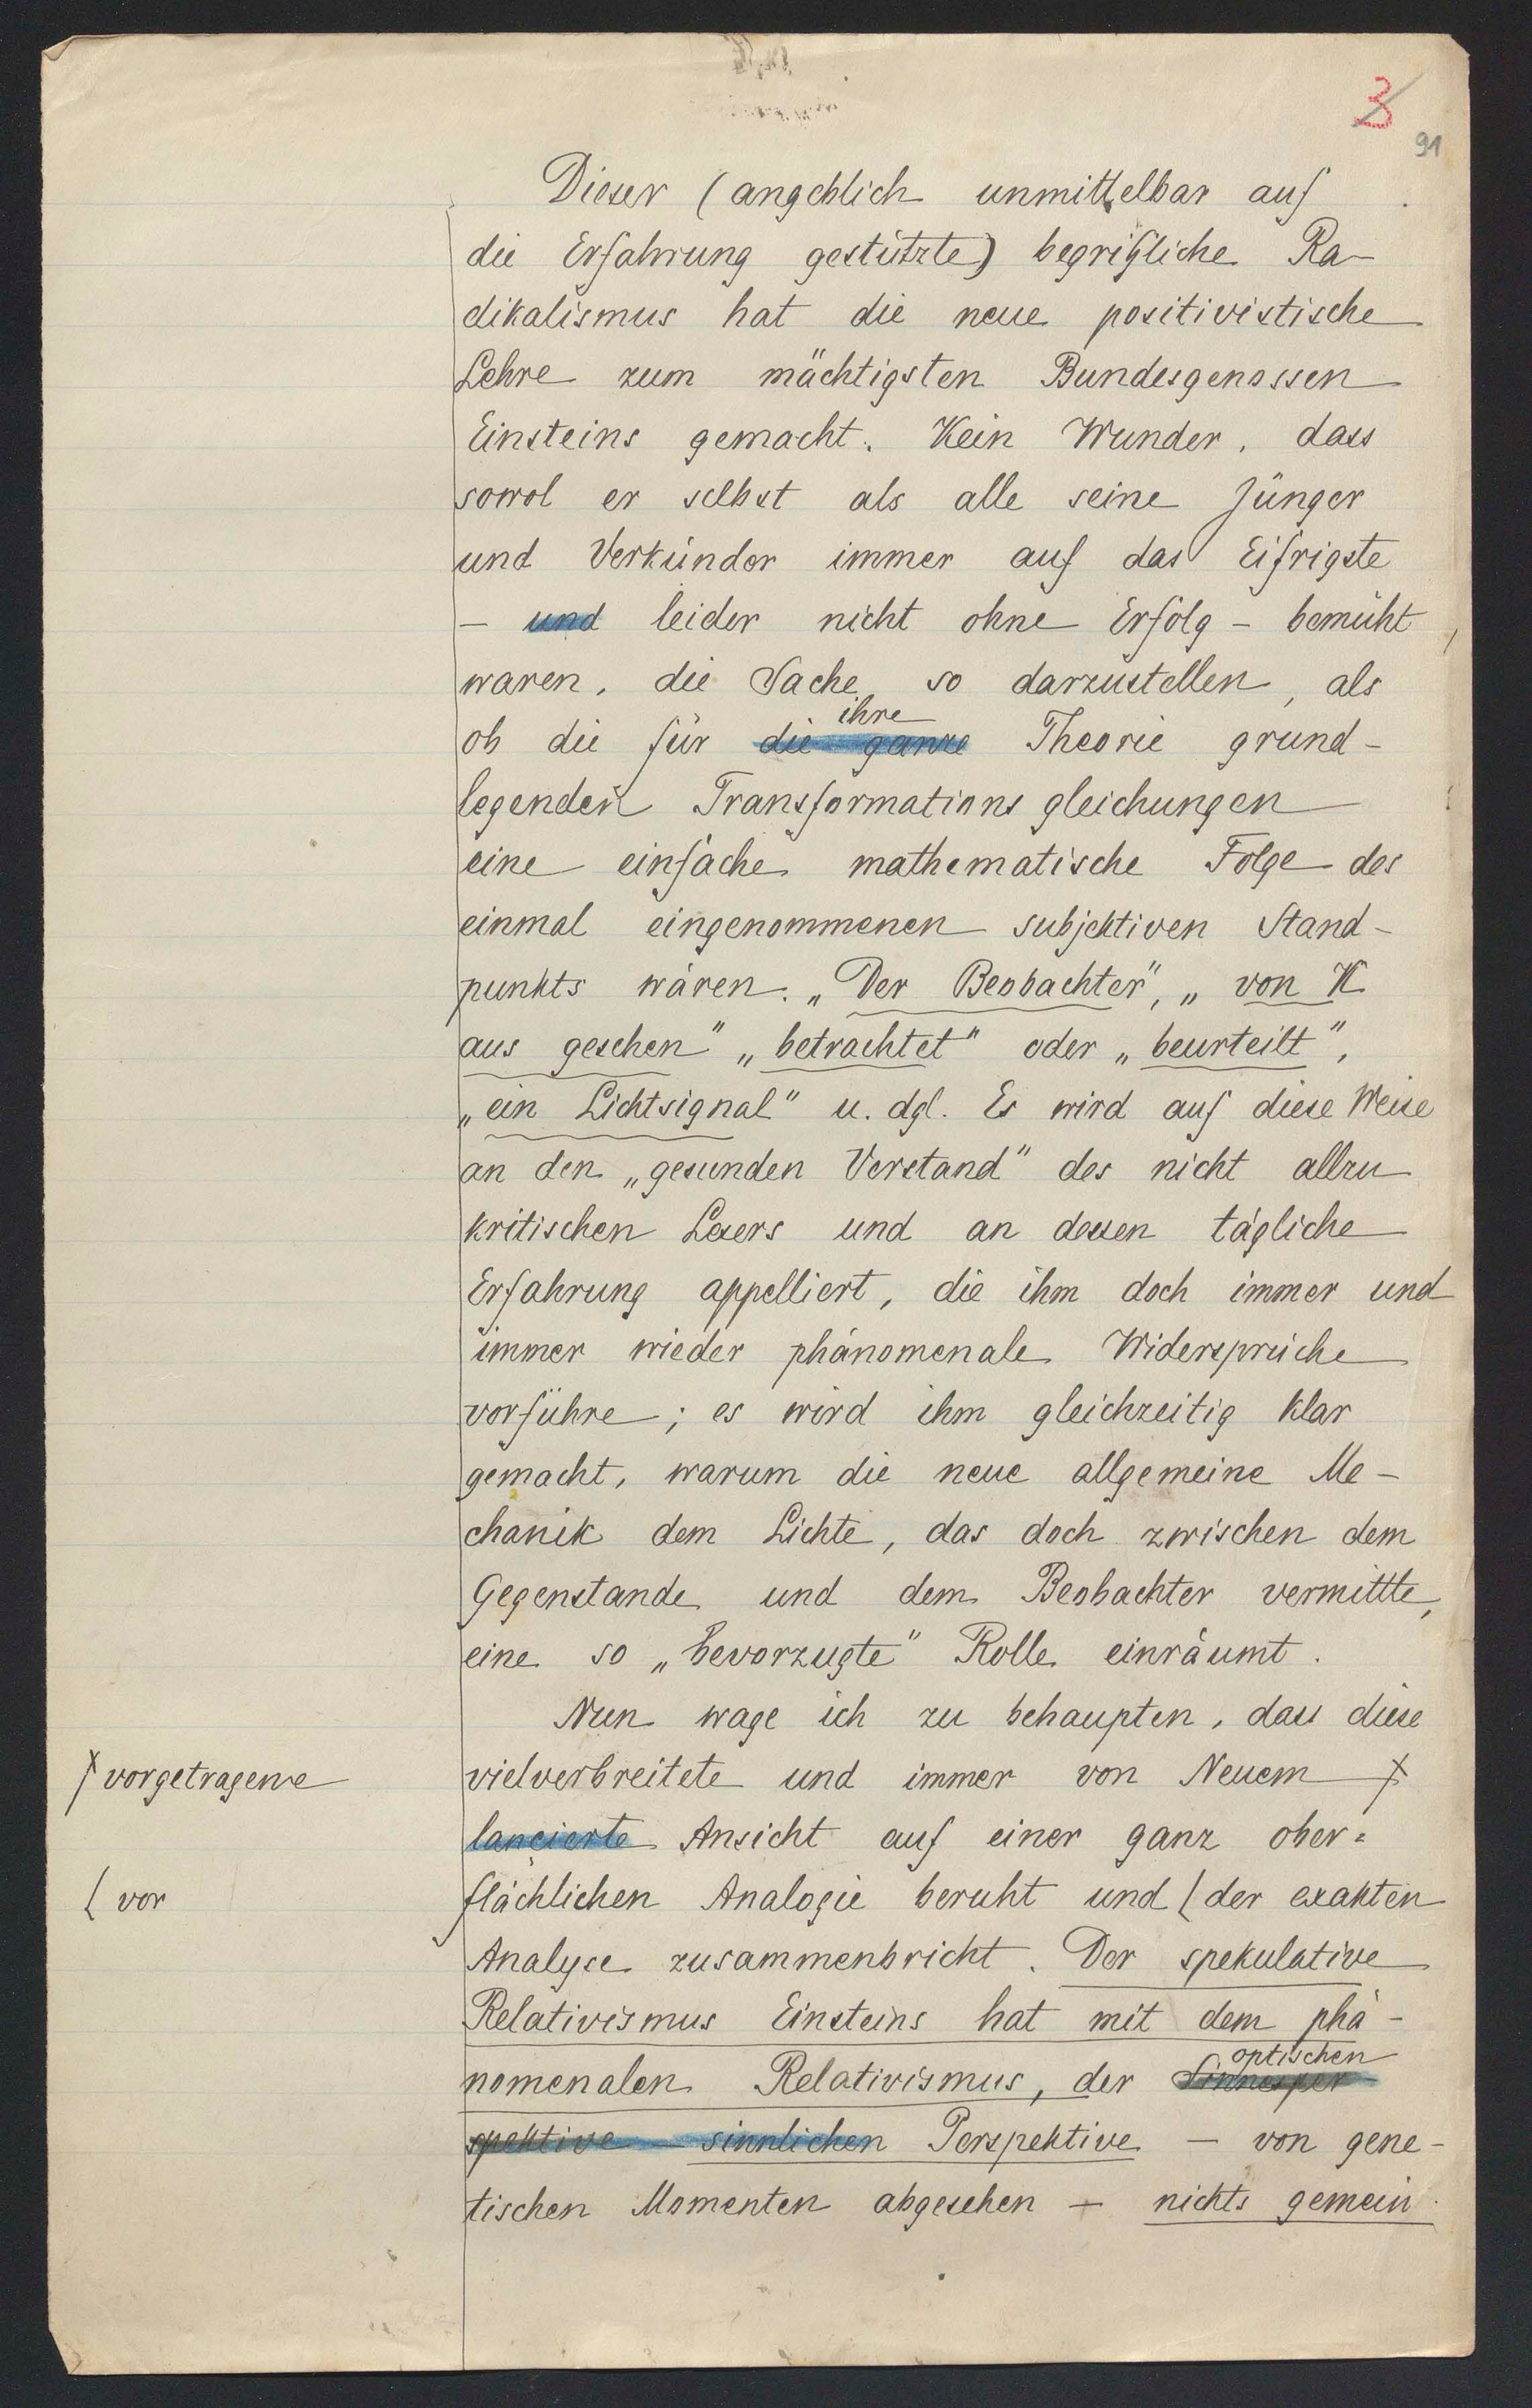 3
91
Dieser (angeblich unmittelbar auf
die Erfahrung gestützte) begrifliche Ra-
dikalismus hat die neue positivistische
Lehre zum mächtigsten Bundesgenossen
Einsteins gemacht. Kein Wunder, dass
sowol er selbst als alle seine Jünger
und Verkünder immer auf das Eifrigste
- und leider nicht ohne Erfolg - bemüht
waren, die Sache so darzustellen, als
ihre
ob die für die ganze Theorie grund-
legenden Transformationsgleichungen
eine einfache mathematische Folge des
einmal eingenommenen subjektiven Stand-
punkts wären. „Der Beobachter", „von K
aus gesehen" „betrachtet" oder „beurteilt",
„ein Lichtsignal" u. dgl. Es wird auf diese Weise
an den „gesunden Verstand" des nicht allzu
kritischen Lesers und an dessen tägliche
Erfahrung appelliert, die ihm doch immer und
immer wieder phänomenale Widersprüche
vorführe; es wird ihm gleichzeitig klar
gemacht, warum die neue allgemeine Me-
chanik dem Lichte, das doch zwischen dem
Gegenstande und dem Beobachter vermittle,
eine so „bevorzugte" Rolle einräumt.
Nun wage ich zu behaupten, dass diese
vielverbreitete und immer von Neuem
vorgetragene
lancierte Ansicht auf einer ganz ober=
flächlichen Analogie beruht und ( der exakten
( vor
Analyse zusammenbricht. Der spekulative
Relativismus Einsteins hat mit dem phä-
optischen
nomenalen Relativismus, der Sinnesper
spektive - sinnlichen Perspektive - von gene-
tischen Momenten abgesehen - nichts gemein.